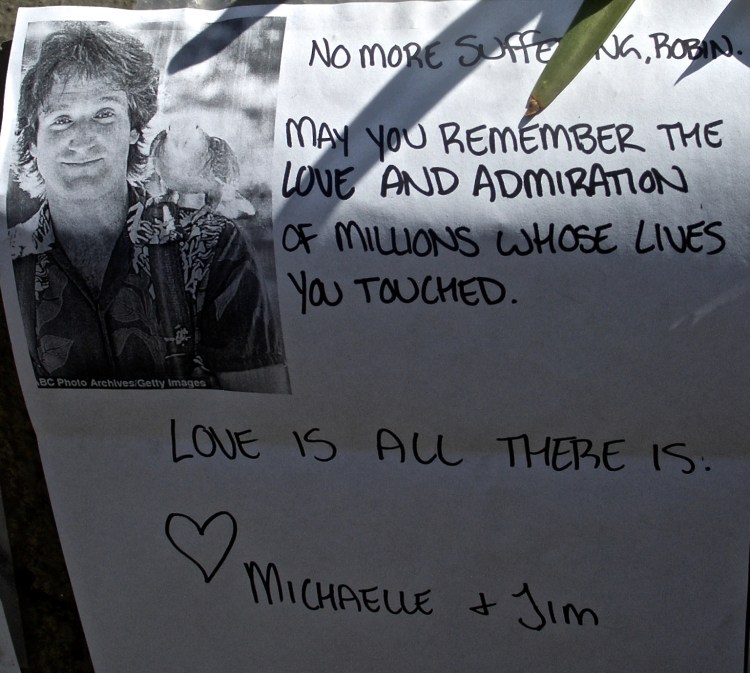 NO MORE SUFFERING, ROBIN.
MAY YOU REMEMBER THE
LOVE AND ADMIRATION
OF MILLIONS WHOSE LIVES
YOU TOUCHED.
BC Photo Archives/Getty Images
LOVE IS ALL THERE IS.
MICHAELLE + JIM